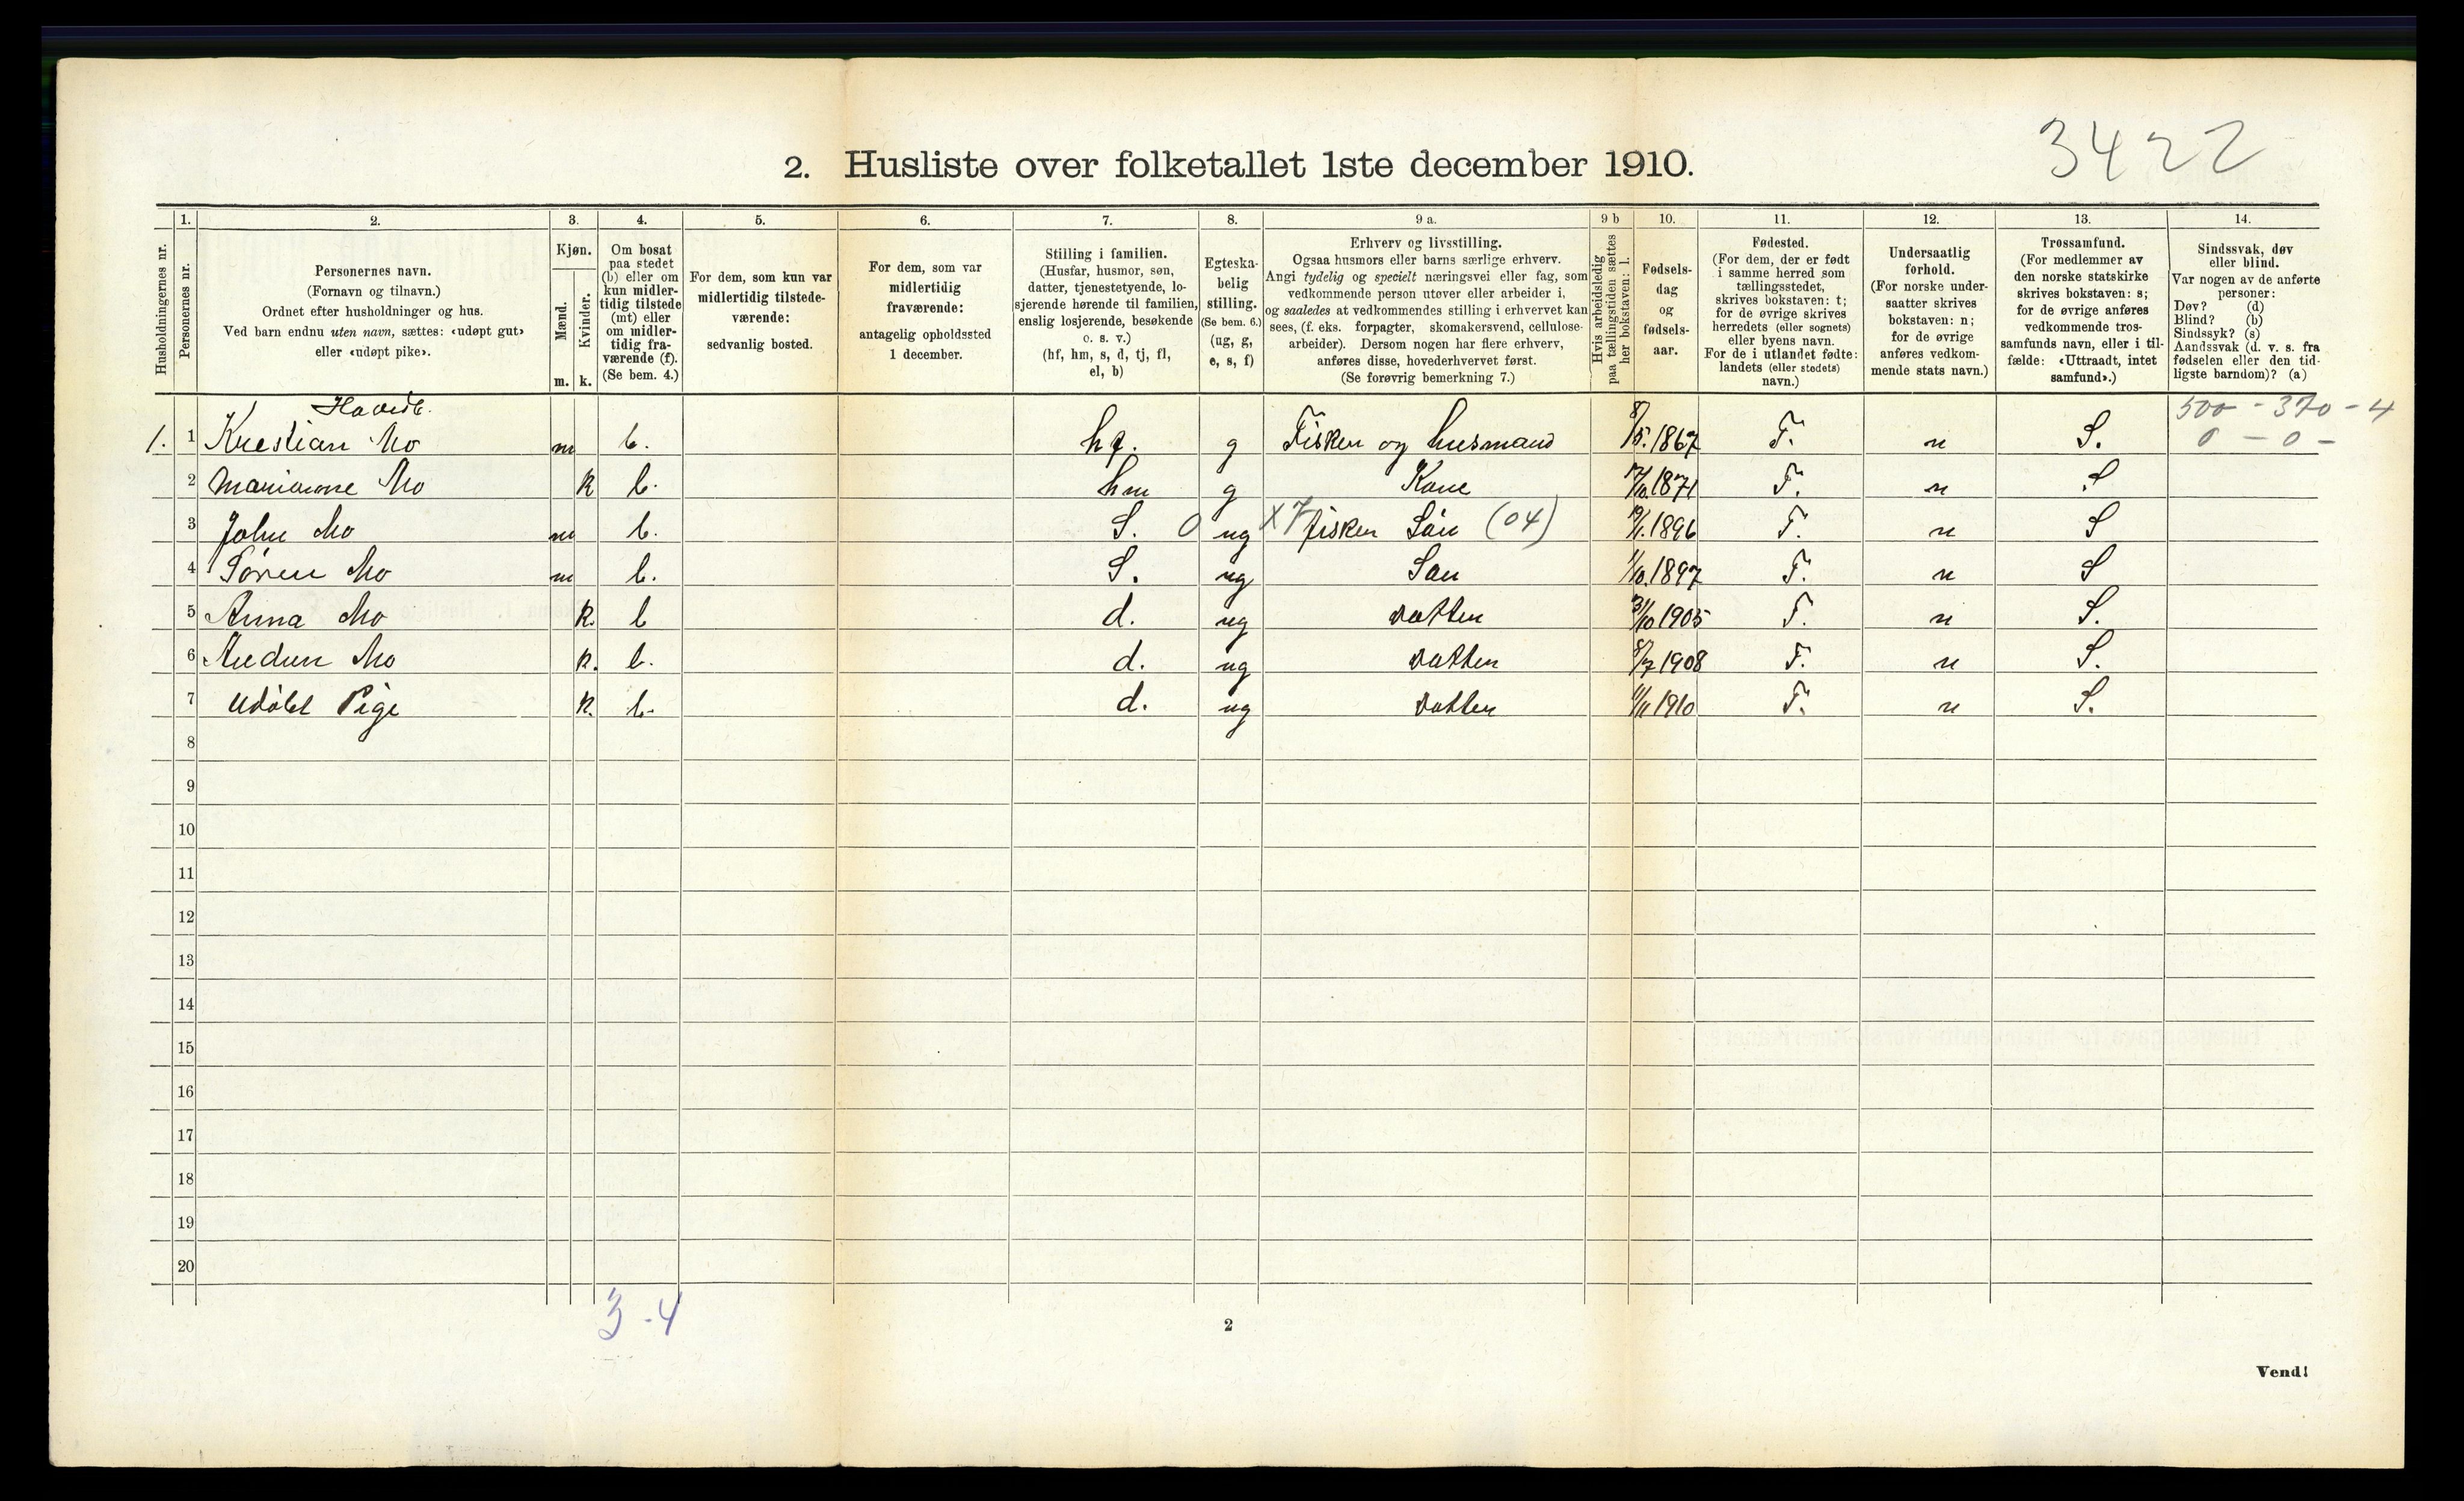 3422
2. Husliste over folketallet 1ste december 1910.
Husholdningernes nr.
1.
Personernes nr.
2.
Personernes navn.
(Fornavn og tilnavn.)
Ordnet efter husholdninger og hus.
Ved barn endnu uten navn, sættes: «udøpt gut»
eller «udøpt pike».
3.
Kjøn.
Mænd.
Kvinder.
m. k.
4.
Om bosat
paa stedet
(b) eller om
kun midler-
tidig tilstede
(mt) eller
om midler-
tidig fra-
værende (f).
(Se bem. 4.)
5.
For dem, som kun var
midlertidig tilstede-
værende:
sedvanlig bosted.
6.
For dem, som var
midlertidig
fraværende:
antagelig opholdssted
1 december.
7.
Stilling i familien.
(Husfar, husmor, søn,
datter, tjenestetyende, lo-
sjerende hørende til familien,
enslig losjerende, besøkende
o. s. v.)
(hf, hm, s, d, tj, fl,
el, b)
8.
Egteska-
belig
stilling.
(Se bem. 6.)
(ug, g,
e, s, f)
9 a.
Erhverv og livsstilling.
Ogsaa husmors eller barns særlige erhverv.
Angi tydelig og specielt næringsvei eller fag, som
vedkommende person utøver eller arbeider i,
og saaledes at vedkommendes stilling i erhvervet kan
sees, (f. eks. forpagter, skomakersvend, cellulose-
arbeider). Dersom nogen har flere erhverv,
anføres disse, hovederhvervet først.
(Se forøvrig bemerkning 7.)
9 b
Hvis arbeidsledig
paa tællingstiden sættes
her bokstaven: l.
10.
Fødsels-
dag
og
fødsels-
aar.
11.
Fødested.
(For dem, der er født
i samme herred som
tællingsstedet,
skrives bokstaven: t;
for de øvrige skrives
herredets (eller sognets)
eller byens navn.
For de i utlandet fødte:
landets (eller stedets)
navn.)
12.
Undersaatlig
forhold.
(For norske under-
saatter skrives
bokstaven: n;
for de øvrige
anføres vedkom-
mende stats navn.)
13.
Trossamfund.
(For medlemmer av
den norske statskirke
skrives bokstaven: s;
for de øvrige anføres
vedkommende tros-
samfunds navn, eller i til-
fælde: «Uttraadt, intet
samfund».)
14.
Sindssvak, døv
eller blind.
Var nogen av de anførte
personer:
Døv? (d)
Blind? (b)
Sindssyk? (s)
Aandssvak (d. v. s. fra
fødselen eller den tid-
ligste barndom)? (a)
500 - 370 - 4
1. 1 Krestian Mo m b. hf. g Fisker og husmand 8/5.1867 T. n S. 0 - 0 -
2 Marianne Mo k b. hm g Kone 1871 T. n S
3 John Mo m b. S. 0 ug X7 fisker Sön (04) 1896 T. n S
4 Sören Mo m b. S. ug Sön 1/10.1897 T. n S
5 Anna Mo k. b d. ug datter 31/10 1905 T. n S.
6 Mo k. b. d. ug datter 8/7 1908 T. n S.
7 Udöbt Pige k. b. d. ug datter 11/11 1910 T. n S.
8
9
10
11
12
13
14
15
16
17
18
19
20
3-4
2
Vend!